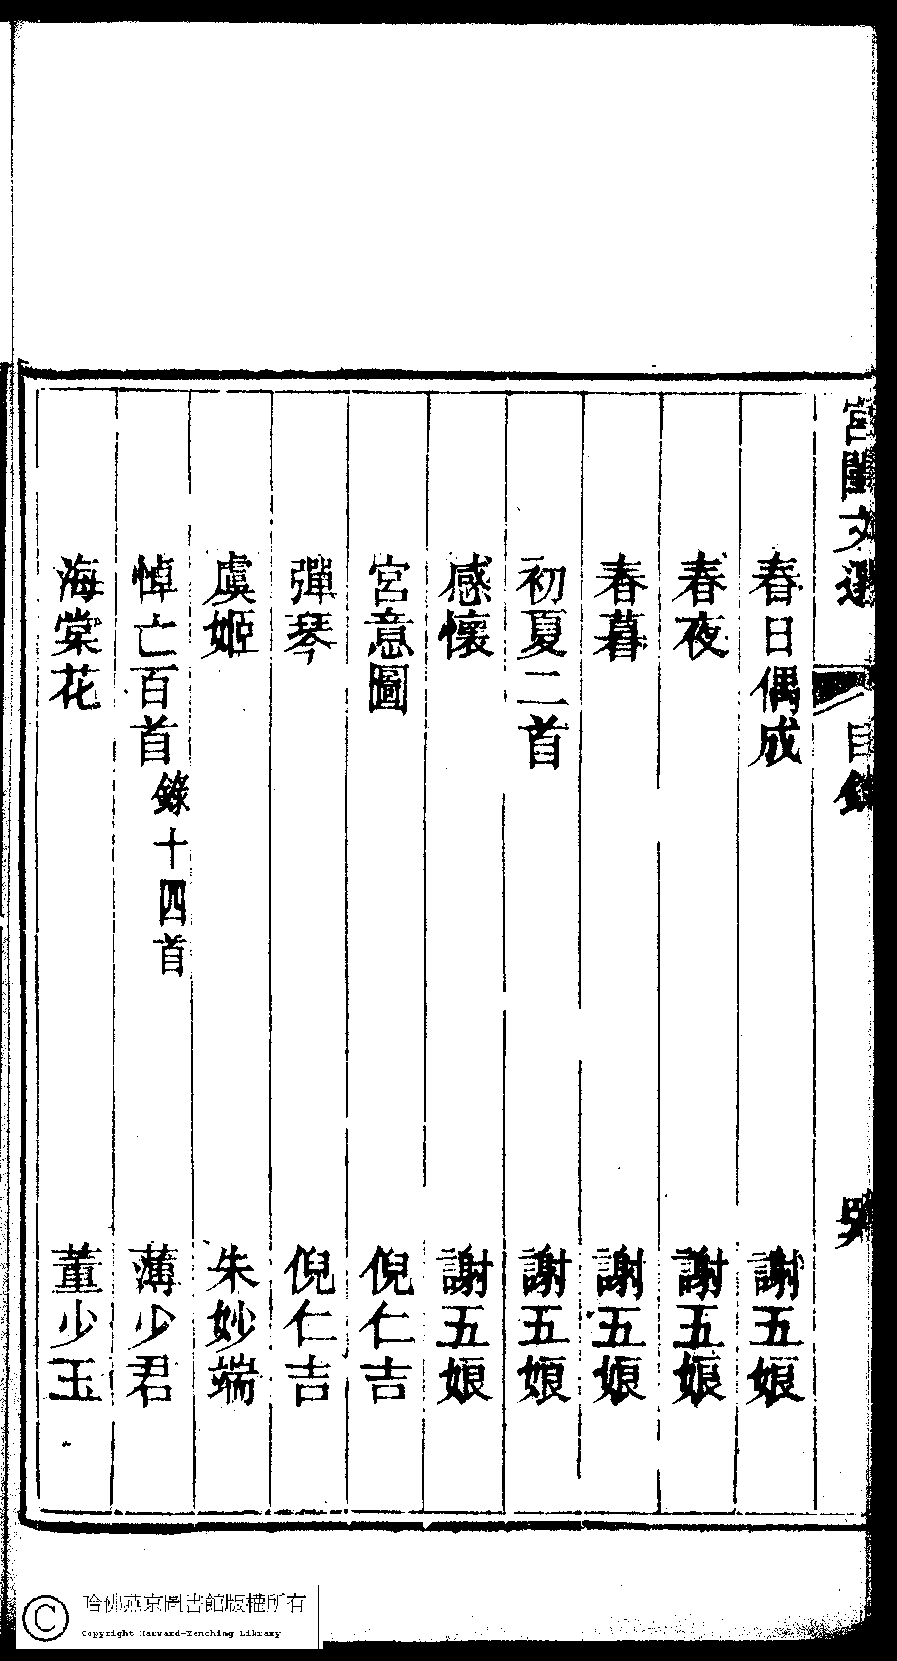 宮閨文選 目錄
春日偶成 謝五娘
春夜 謝五娘
春暮 謝五娘
初夏二首 謝五娘
感懷 謝五娘
宮意圖 倪仁吉
彈琴 倪仁吉
虞姬 朱妙端
悼亡百首 錄十四首 薄少君
海棠花 董少玉
哈佛燕京圖書館版權所有
Copyright Harvard-Yenching Library